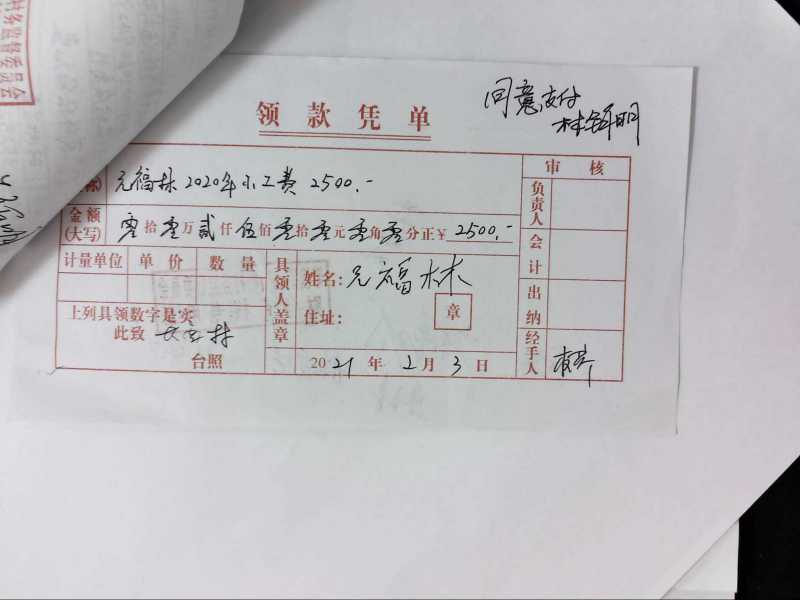 村务监督委员会
领款凭单
同意支付
审核
元福林 2020年小工费 2500.-
负责人
金额(大写) 零拾零万贰仟伍佰零拾零元零角零分正¥2500.-
会计
计量单位 单价 数量
具领人盖章
姓名:元福林
住址:
章
出纳
上列具领数字是实
此致
台照
2021年2月3日
经手人